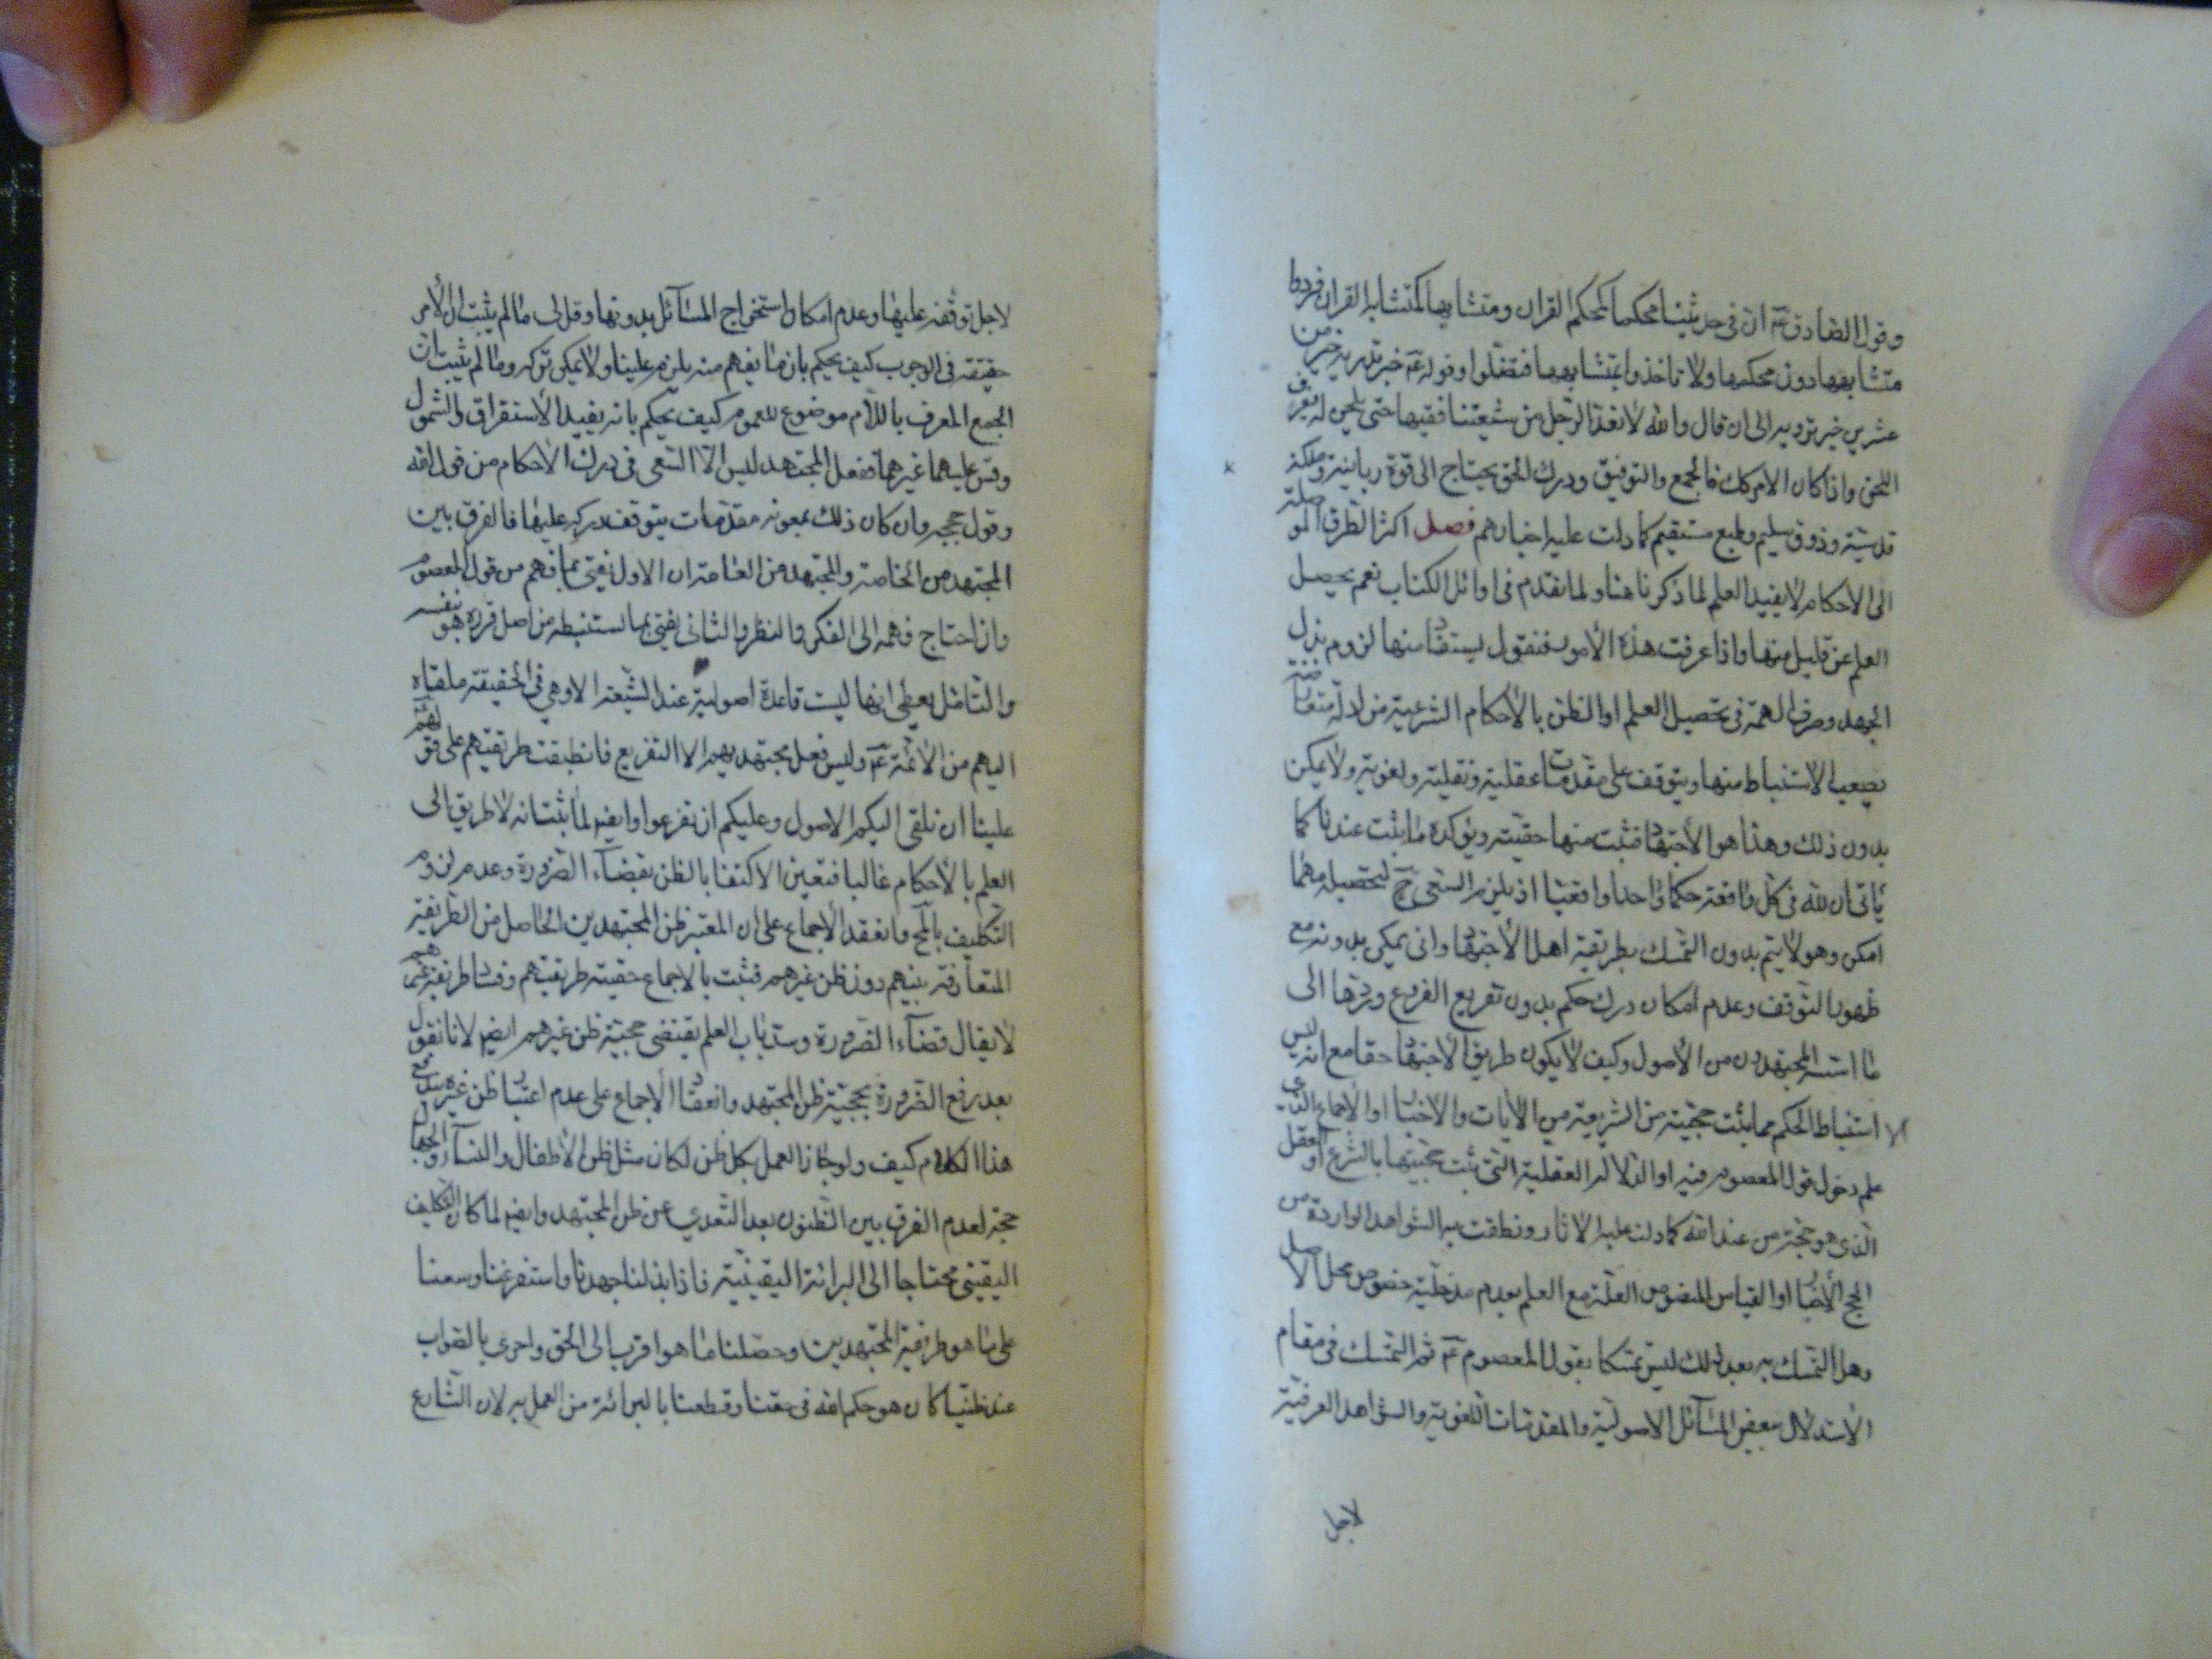 وقول الصادق عَ ان فى حديثنا محكما كمحكم القران ومتشابها كمتشابه القران فردوا
متشابهها دون محكمها ولا تأخذوا بمتشابهها فتضلّوا وقوله عَ خبر تدريه خير من
عشرين خبر ترويه الى ان قال والله لا نعدّ الرّجل من شيعتنا فقيها حتى يلحن له فيعرف
اللحن واذا كان الامر كك فالجمع والتوفيق ودرك الحق يحتاج الى قوة ربانية وملكة
قدسيّة وذوق سليم وطبع مستقيم كما دلت عليه اخبارهم فصل اكثر الطرق الموصلة
الى الاحكام لا يفيد العلم لما ذكرنا هنا ولما تقدم فى اوائل الكتاب نعم يحصل
العلم عن قليل منها واذا عرفت هذه الأمور فنقول يستفاد منها لزوم بذل
الجهد وصرف الهمة فى تحصيل العلم او الظن بالأحكام الشرعية من ادلة
يصعب الاستنباط منها ويتوقف على مقدمات عقلية ونقلية ولغوية ولا يمكن
بدون ذلك وهذا هو الأجتهاد فثبت منها حقيته ويؤكده ما يثبت عندنا كما
يأتى ان لله فى كل واقعة حكما واحدا واقعيّا اذ يلزم السّعى حَ لتحصيله مهما
امكن وهو لا يتم بدون التمسك بطريقة اهل الأجتهاد وانى يمكن بدونه مع
ظهور التوقف وعدم امكان درك حكم بدون تفريع الفروع وردّها الى
ما اسّسه المجتهدون من الأصول وكيف لا يكون طريق الأجتهاد حقا مع انه ليس
الا استنباط الحكم مما يثبت حجّيته من الشريعة من الأيات والأخبار او الأجماع الذى
علم دخول قول المعصوم فيه او الدّلالة العقلية التى يثبت حجيتها بالشرع او العقل
الّذى هو حجّة من عند الله كما دلت عليه الاثار ونطقت به الشواهد الواردة من
الحج الأخبار او القياس المنصوص العلّة مع العلم بعدم مدخليّة خصوص محل الاصل
وهل التمسك به بعد ذلك ليس تمسّكا بقول المعصوم عَ ثم التمسك فى مقام
الأستدلال ببعض المسائل الاصوليّة والمقدمات اللغوية والشواهد العرفيّة
لاجل
لاجل توقّفه عليها وعدم امكان استخراج المسآئل بدونها وقل لى ما لم يثبت ان الأمر
حقيقة فى الوجوب كيف يحكم بان ما يفهم منه يلزم علينا ولا يمكن تركه وما لم يثبت ان
الجمع المعرف باللّام موضوع للعموم كيف يحكم بانه يفيد الأستغراق والشمول
وقس عليهما غيرهما ففعل المجتهد ليس الّا السّعى فى درك الأحكام من قول الله
وقول حججه وان كان ذلك بمعونة مقدّمات يتوقف دركه عليها فالفرق بين
المجتهد من الخاصة والمجتهد من العامة ان الاول يفتى بما فهم من قول المعصوم
وان احتاج فهمه الى الفكر والنظر والثانى يفتى بما استنبطه من اصل قرره هو نفسه
والتّأمّل يعطى انها ليست قاعدة اصولية عند الشّيعة الا وهى فى الحقيقة ملقاة
اليهم من الأئمّة عَ وليس فعل مجتهديهم الا التفريع فانطبقت طريقتهم على وفق
علينا ان نلقى اليكم الاصول وعليكم ان تفرعوا وايضا لما ثبت انه لا طريق الى
العلم بالأحكام غالبا فتعين الاكتفا بالظن بقضآء الضّرورة وعدم لزوم
التّكليف بالمح وانعقد الأجماع على ان المعتبر ظن المجتهدين الحاصل من الطّريقة
المتعارفة بينهم دون ظن غيرهم فثبت بالاجماع حقية طريقتهم وفساد طريقة غيرهم
لا يقال قضآء الضّرورة وسدّ باب العلم يقتضى حجيّة ظن غيرهم ايضا لانا نقول
بعد رفع الضّرورة بحجيّة ظن المجتهد وانعقاد الأجماع على عدم اعتبار ظن غيره يندفع
هذا الكلام كيف ولو جاز العمل بكل ظن لكان مثل ظن الأطفال والنسآء والجهال
حجة لعدم الفرق بين الظنون بعد التّعدي عن ظن المجتهد وايضا لما كان التّكليف
اليقينى محتاجا الى البرائة اليقينيّة فاذا بذلنا جهدنا واستفرغنا وسعنا
على ما هو طريقة المجتهدين وحصّلنا ما هو اقرب الى الحق واحرى بالصّواب
عند ظنّنا كان هو حكم الله فى حقنا وقطعنا بالبرائة من العمل به لان الشّارع